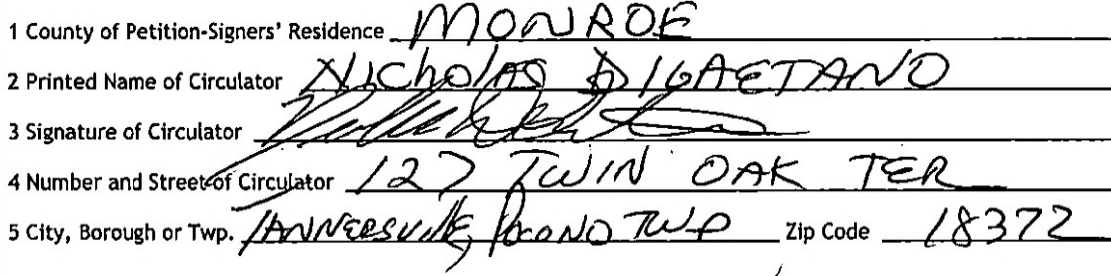 1 County of Petition-Signers' Residence MONROE
2 Printed Name of Circulator Nicholas DIGAETANO
3 Signature of Circulator
4 Number and Street of Circulator 127 TWIN OAK TER
5 City, Borough or Twp. TANNERSVILLE, POCONO TWP Zip Code 18372